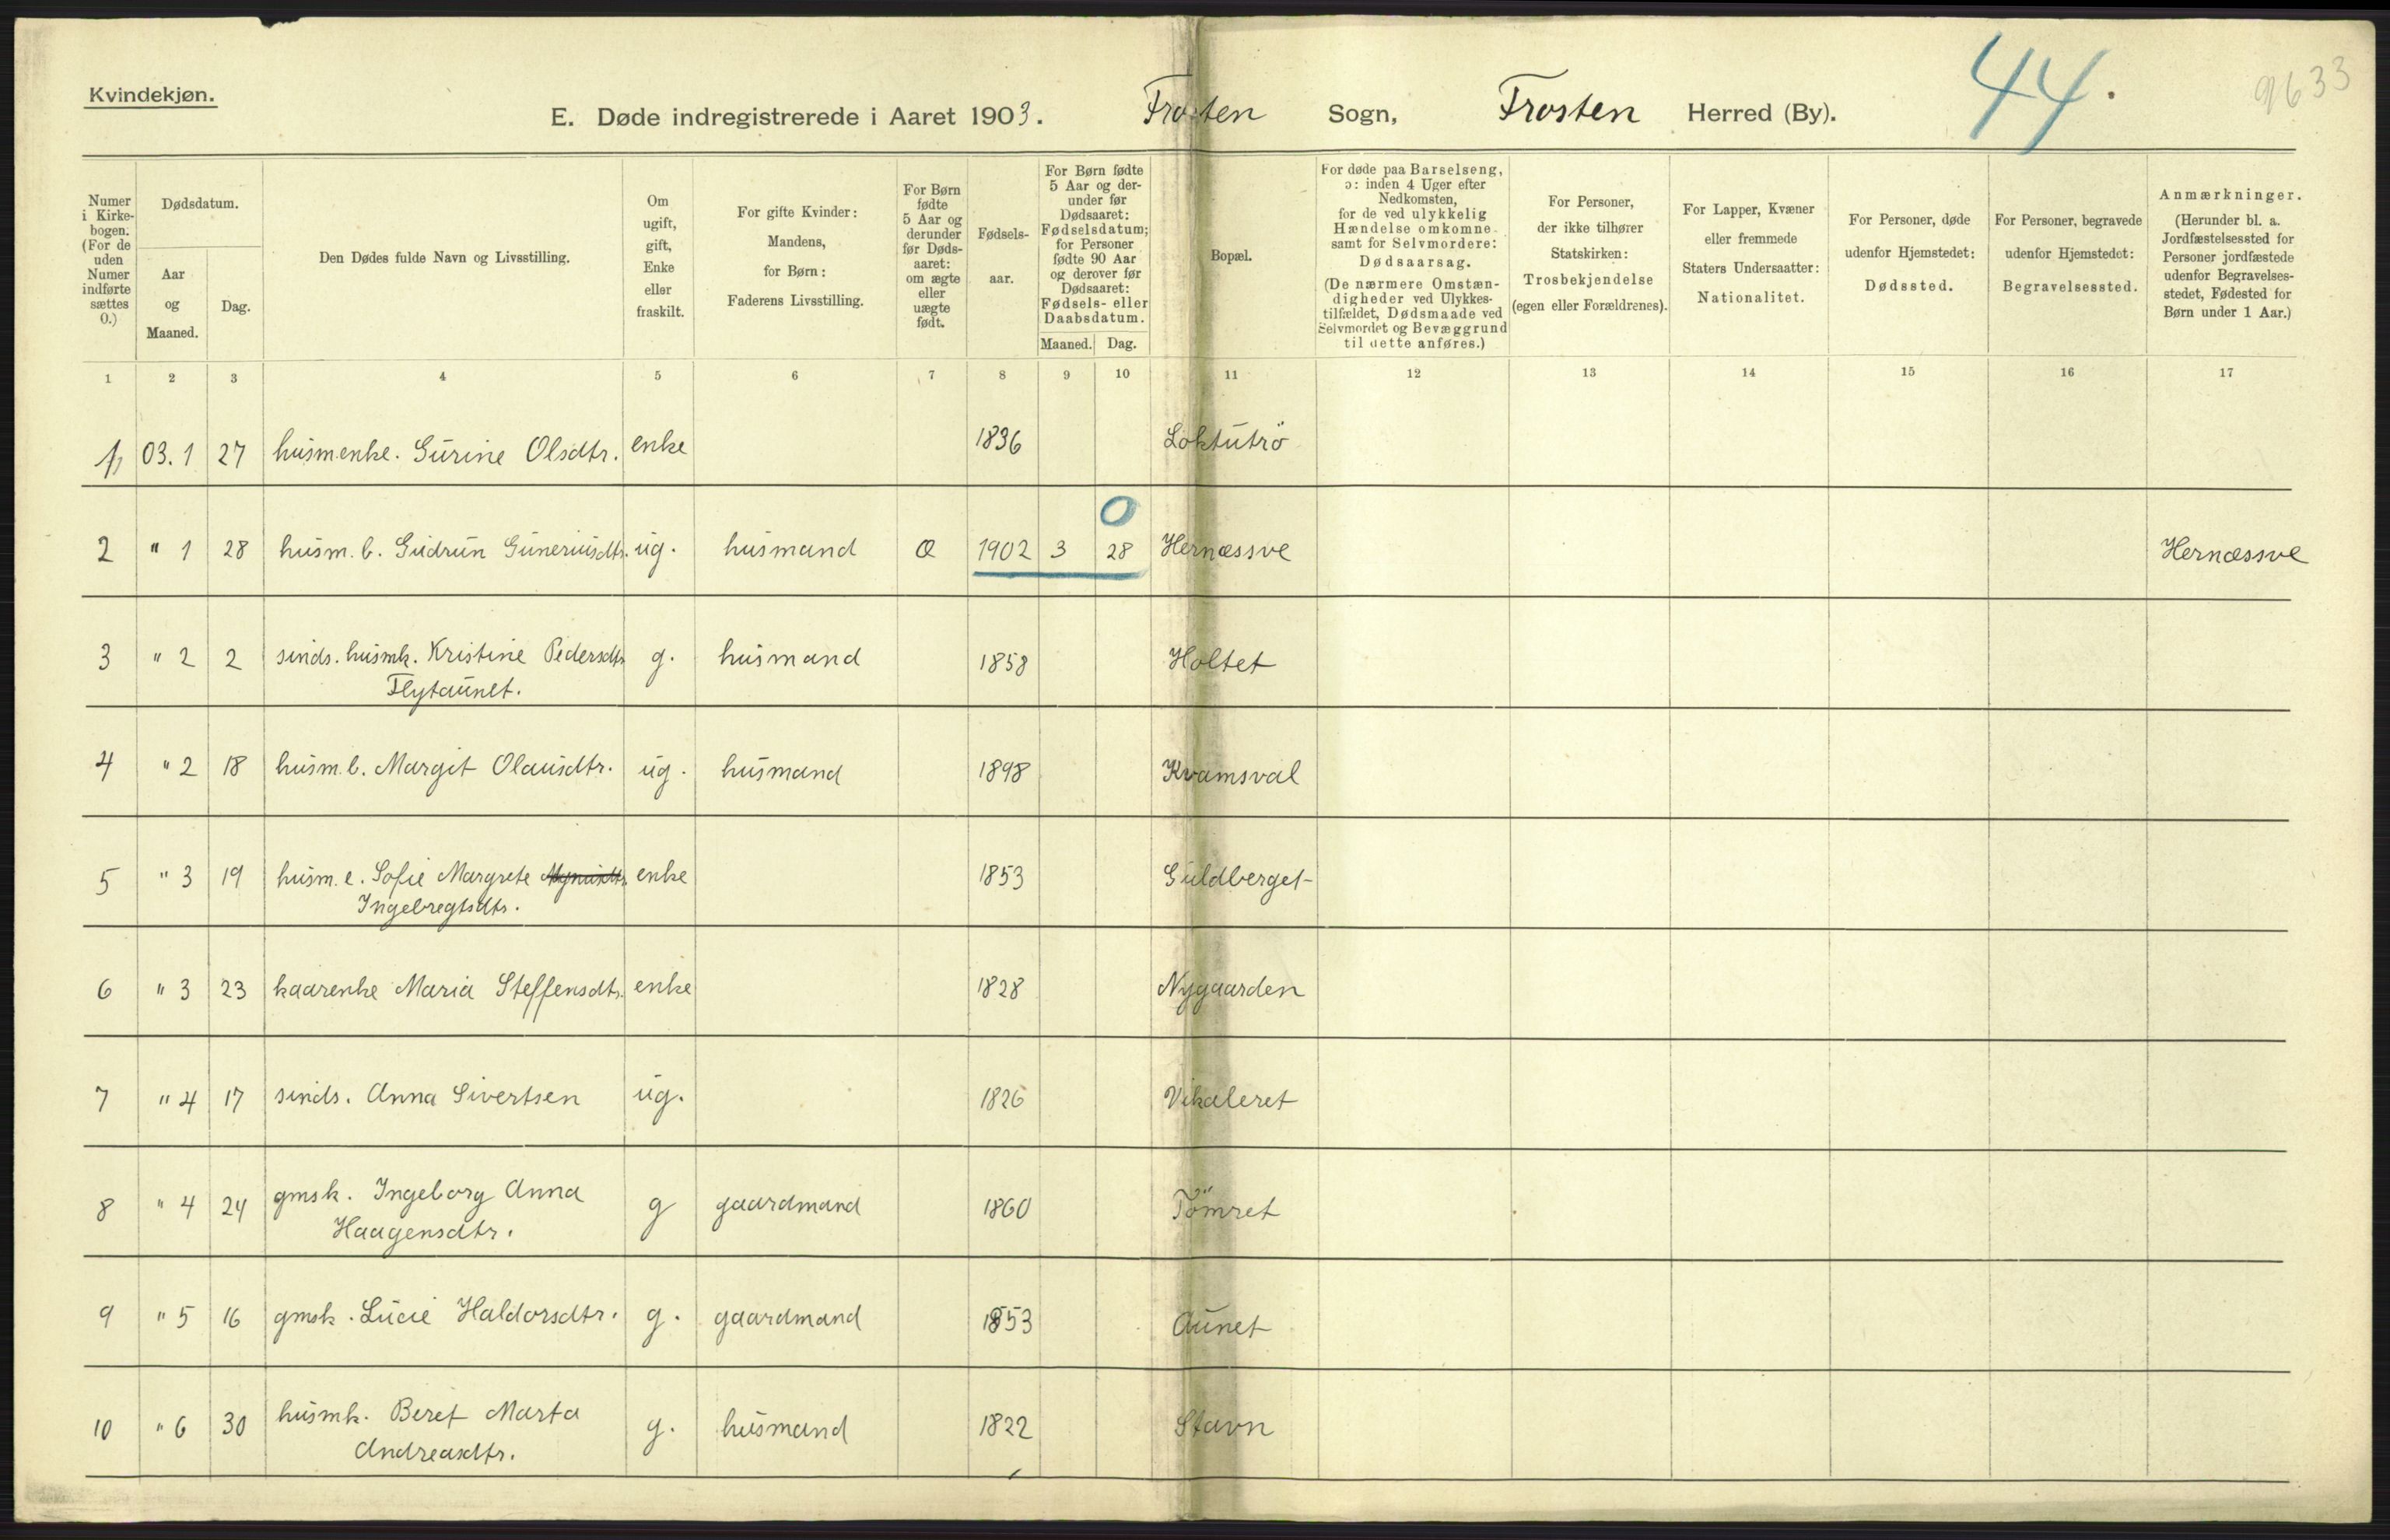 Kvindekjøn.
E. Døde indregistrerede i Aaret 1903. Frosten Sogn, Frosten Herred (By). 44. 9633
Numer i Kirkebogen. (For de uden Numer indførte sættes 0.)
Dødsdatum.
Aar og Maaned.
Dag.
Den Dødes fulde Navn og Livsstilling.
Om ugift, gift, Enke eller fraskilt.
For gifte Kvinder: Mandens, for Børn: Faderens Livsstilling.
For Børn fødte 5 Aar og derunder før Dødsaaret: om ægte eller uægte født.
Fødselsaar.
For Børn fødte 5 Aar og derunder før Dødsaaret: Fødselsdatum; for Personer fødte 90 Aar og derover før Dødsaaret: Fødsels- eller Daabsdatum.
Maaned. Dag.
Bopæl.
For døde paa Barselseng, ɔ: inden 4 Uger efter Nedkomsten, for de ved ulykkelig Hændelse omkomne samt for Selvmordere: Dødsaarsag. (De nærmere Omstændigheder ved Ulykkestilfældet, Dødsmaade ved Selvmordet og Bevæggrund til dette anføres.)
For Personer, der ikke tilhører Statskirken: Trosbekjendelse (egen eller Forældrenes).
For Lapper, Kvæner eller fremmede Staters Undersaatter: Nationalitet.
For Personer, døde udenfor Hjemstedet: Dødssted.
For Personer, begravede udenfor Hjemstedet: Begravelsessted.
Anmærkninger. (Herunder bl. a. Jordfæstelsessted for Personer jordfæstede udenfor Begravelsesstedet, Fødested for Børn under 1 Aar.)
1 2 3 4 5 6 7 8 9 10 11 12 13 14 15 16 17
1 03.1 27 husmenke. Gurine Olsdtr. enke 1836 Loktutrö
0
2 " 1 28 husm. b. Gudrun Guneriusdtr. ug. husmand Æ 1902 3 28 Hernæssve Hernæssve
3 " 2 2 sinds. husmk. Kristine Pedersdtr g. husmand 1858 Holtet
Flytaunet.
4 " 2 18 husm. b. Margit Olausdtr. ug. husmand 1898 Kvamsval
5 " 3 19 husm. e. Sofie Margrete enke 1853 Guldberget
Ingebregtsdtr.
6 " 3 23 kaarenke Maria Steffensdtr. enke 1828 Nygaarden
7 " 4 17 sinds. Anna Sivertsen ug. 1826 Vikaleret
8 " 4 24 gmsk. Ingeborg Anna g gaardmand 1860 Tömret
Haagensdtr.
9 " 5 16 gmsk. Lucie Haldorsdtr. g. gaardmand 1853 Aunet
10 " 6 30 husmk. Beret Marta g. husmand 1822 Stavn
Andreasdtr.